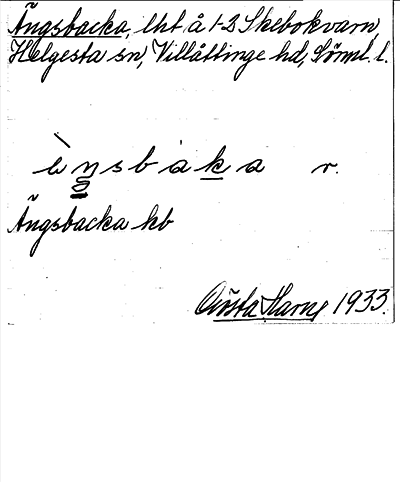 Ängsbacka, lht å 1-2 Skebokvarn,
Helgesta sn, Villåttinge hd, Sörml. l.
ὲŋsbaka r.
Ängsbacka kb
Gösta Harne 1933.